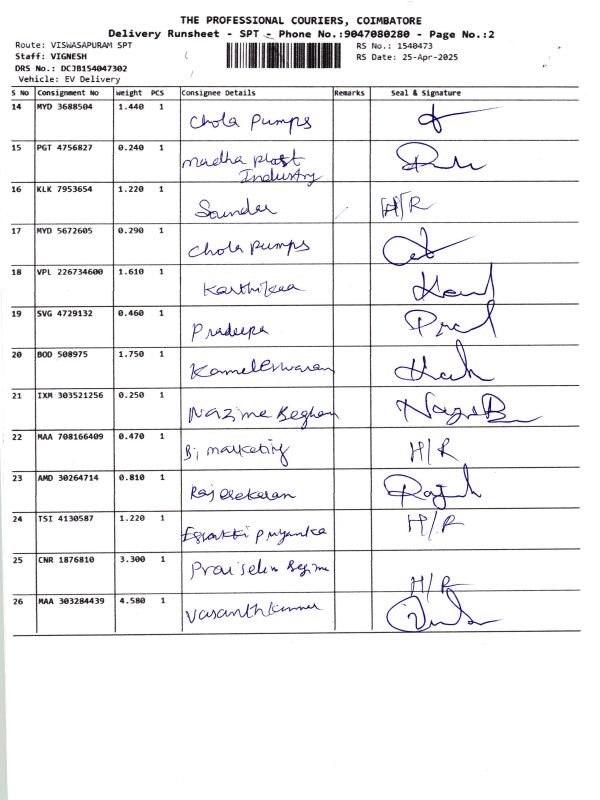 THE PROFESSIONAL COURIERS, COIMBATORE
Delivery Runsheet - SPT - Phone No.:9047080280 - Page No.:2
Route: VISWASAPURAM SPT RS No.: 1540473
Staff: VIGNESH RS Date: 25-Apr-2025
DRS No.: DCJB154047302
Vehicle: EV Delivery
S No Consignment No Weight PCS Consignee Details Remarks Seal & Signature
14 MYD 3688504 1.440 1 Chola Pumps
15 PGT 4756827 0.240 1 madha plast
Industry
16 KLK 7953654 1.220 1 Saunder H/R
17 MYD 5672605 0.290 1 Chola Pumps
18 VPL 226734600 1.610 1 Karthikaa
19 SVG 4729132 0.460 1 Pradeepa
20 BOD 508975 1.750 1 Kameleswaran
21 IXM 303521256 0.250 1 Nazime Begham
22 MAA 708166409 0.470 1 Bj marketing H/R
23 AMD 30264714 0.810 1 Rajesekaran
24 TSI 4130587 1.220 1 Esakki priyanka H/R
25 CNR 1876810 3.300 1 Praiselin Regime
H/R
26 MAA 303284439 4.580 1 Vasanthkumar